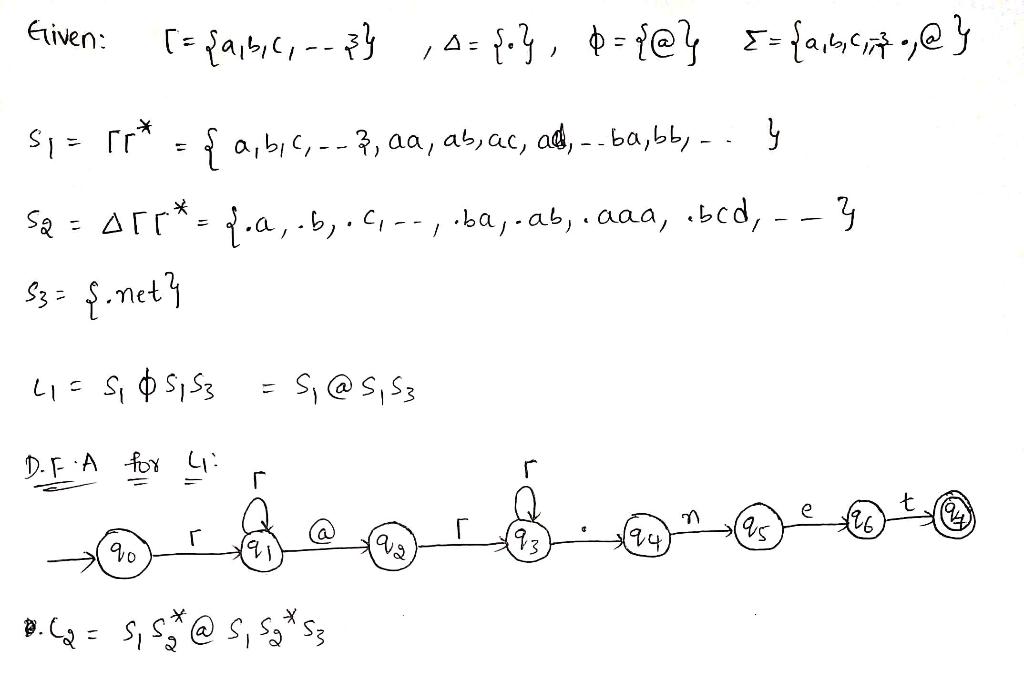 Given: Γ = {a,b,c, --z} , Δ = {.} , ϕ = {@} Σ = {a,b,c,--z .,@}
S1 = ΓΓ* = { a,b,c,--z, aa, ab, ac, ad, --ba,bb, -- }
S2 = ΔΓΓ* = {.a, .b, .c, --, .ba, .ab, .aaa, .bcd, -- }
S3 = {.net}
L1 = S1 ϕ S1 S3 = S1 @ S1 S3
D.F.A for L1:
Γ Γ
q0 Γ q1 @ q2 Γ q3 . q4 n q5 e q6 t q7
L2 = S1 S2* @ S1 S2* S3